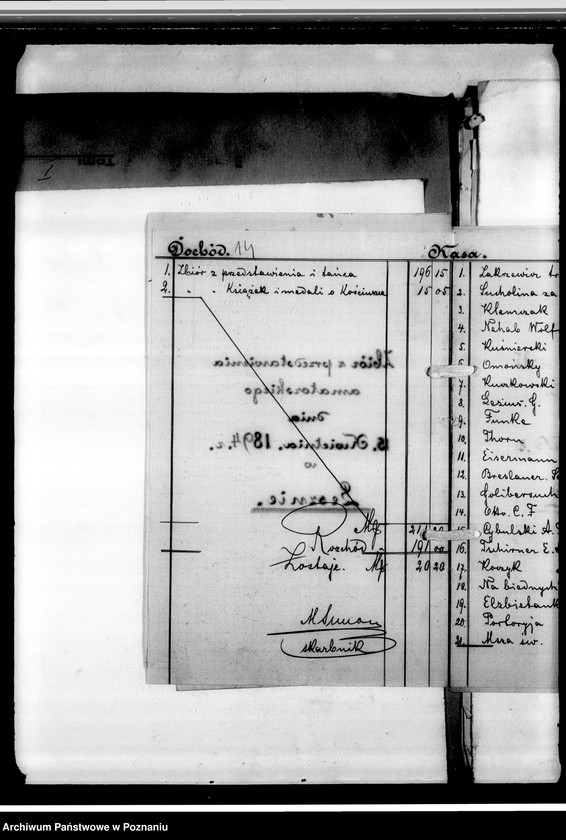 Dochód. 14
1. Zbiór z przedstawienia i tańca 196 15
2. " " Książek i medali o Kościuszce 15 05
Mk 211 20
Rozchód " 191 00
Zostaje. Mk 20 20
skarbnik
Zbiór z przedstawienia
amatorskiego
dnia
15. Kwietnia. 1894 r.
w
Lesznie.
Kasa.
1. Zakrzewicz
2. Sucholina za
3. Klemczak
4. Nehab Wolf
5. Kuśnierski
6. Omańsky
7. Kurkowski
8.
9. Funke
10. Thorn
11. Eisermann
12. Breslauer.
13.
14. Otto. C. F
15. Cybulski A.
16. Tschirner E.
17. Koszyk
18. Na biednych
19. Elżbietank
20. Portoryja
21. Msza św.
Archiwum Państwowe w Poznaniu